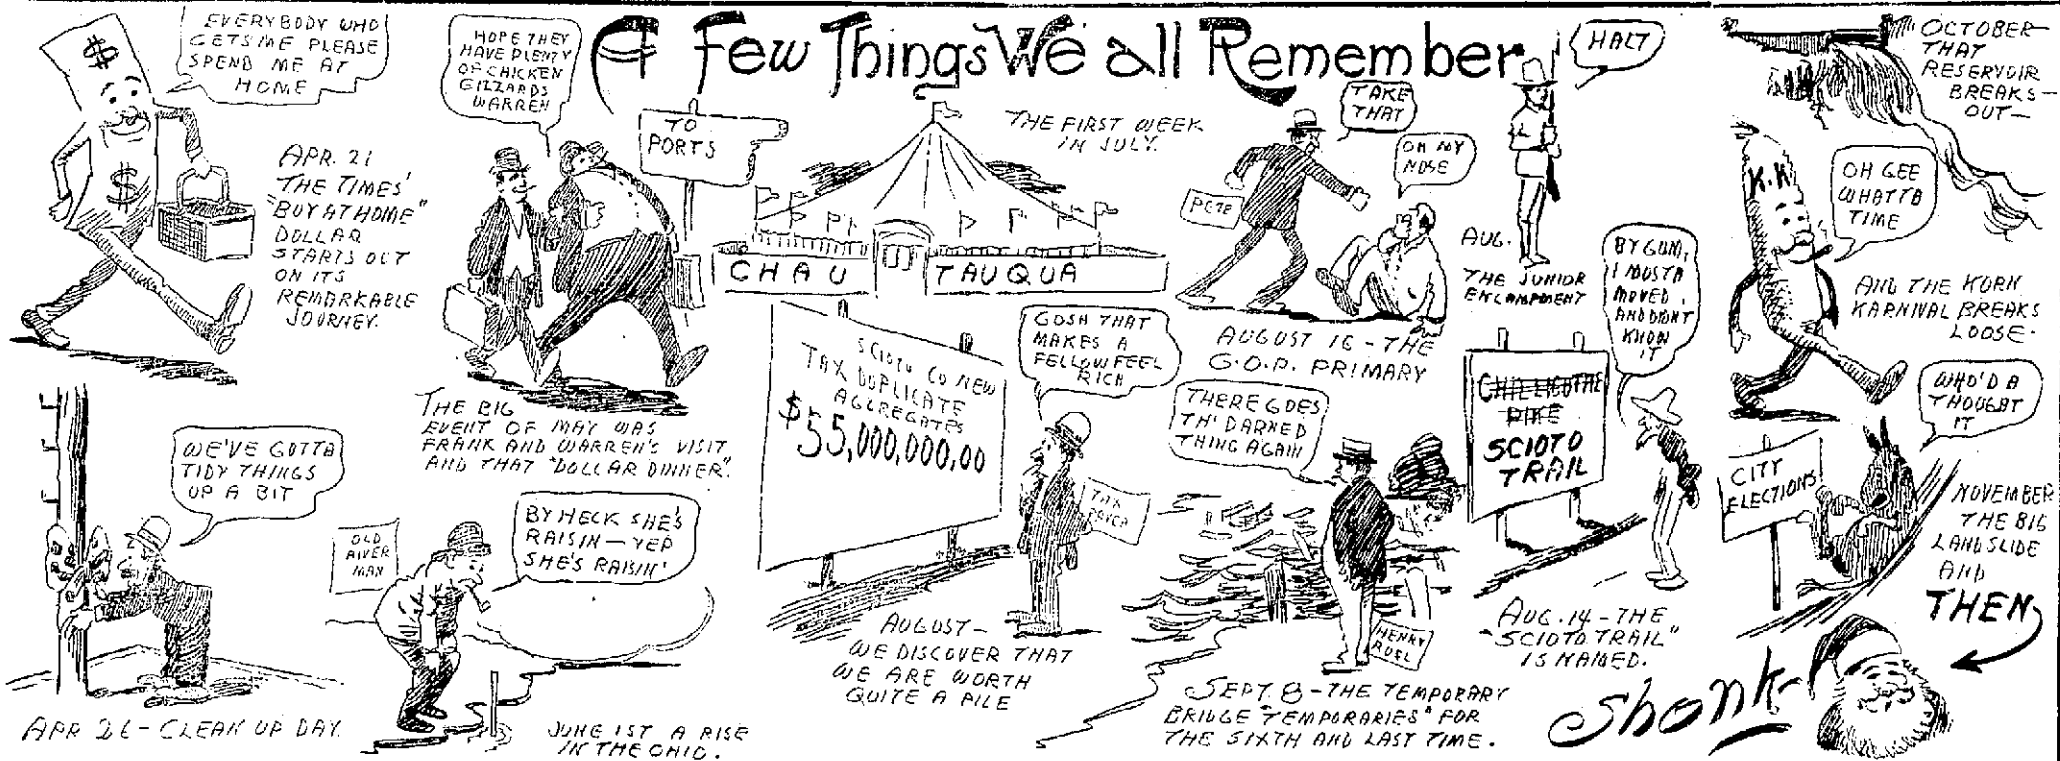 A Few Things We all Remember
EVERYBODY WHO
GETS ME PLEASE
SPEND ME AT
HOME
$
$
APR. 21
THE TIMES'
"BUY AT HOME"
DOLLAR
STARTS OUT
ON ITS
REMARKABLE
JOURNEY.
HOPE THEY
HAVE PLENTY
OF CHICKEN
GIZZARDS
WARREN
TO
PORTS
THE BIG
EVENT OF MAY WAS
FRANK AND WARREN'S VISIT
AND THAT "DOLLAR DINNER".
WE'VE GOTTA
TIDY THINGS
UP A BIT
APR 26 - CLEAN UP DAY.
OLD
RIVER
MAN
BY HECK SHE'S
RAISIN — YEP
SHE'S RAISIN'
JUNE 1ST A RISE
IN THE OHIO.
THE FIRST WEEK
IN JULY.
CHAU TAUQUA
SCIOTO CO NEW
TAX DUPLICATE
AGGREGATES
$55,000,000,00
GOSH THAT
MAKES A
FELLOW FEEL
RICH
TAX
PAYER
AUGUST—
WE DISCOVER THAT
WE ARE WORTH
QUITE A PILE
TAKE
THAT
OH MY
NOSE
PETE
AUGUST 16 - THE
G.O.P. PRIMARY
HALT
AUG.
THE JUNIOR
ENCAMPMENT
THERE GOES
TH' DARNED
THING AGAIN
HENRY
RUEL
SEPT. 8 - THE TEMPORARY
BRIDGE "TEMPORARIES" FOR
THE SIXTH AND LAST TIME.
BY GUM,
I MUSTA
MOVED
AND DIDNT
KNOW
IT
CHILLICOTHE
PIKE
SCIOTO
TRAIL
AUG. 14 - THE
"SCIOTO TRAIL"
IS NAMED.
OCTOBER—
THAT
RESERVOIR
BREAKS—
OUT—
K.K
OH GEE
WHATTA
TIME
AND THE KORN
KARNIVAL BREAKS
LOOSE.
WHO'D A
THOUGHT
IT
CITY
ELECTIONS
NOVEMBER
THE BIG
LANDSLIDE
AND
THEN
Shonk